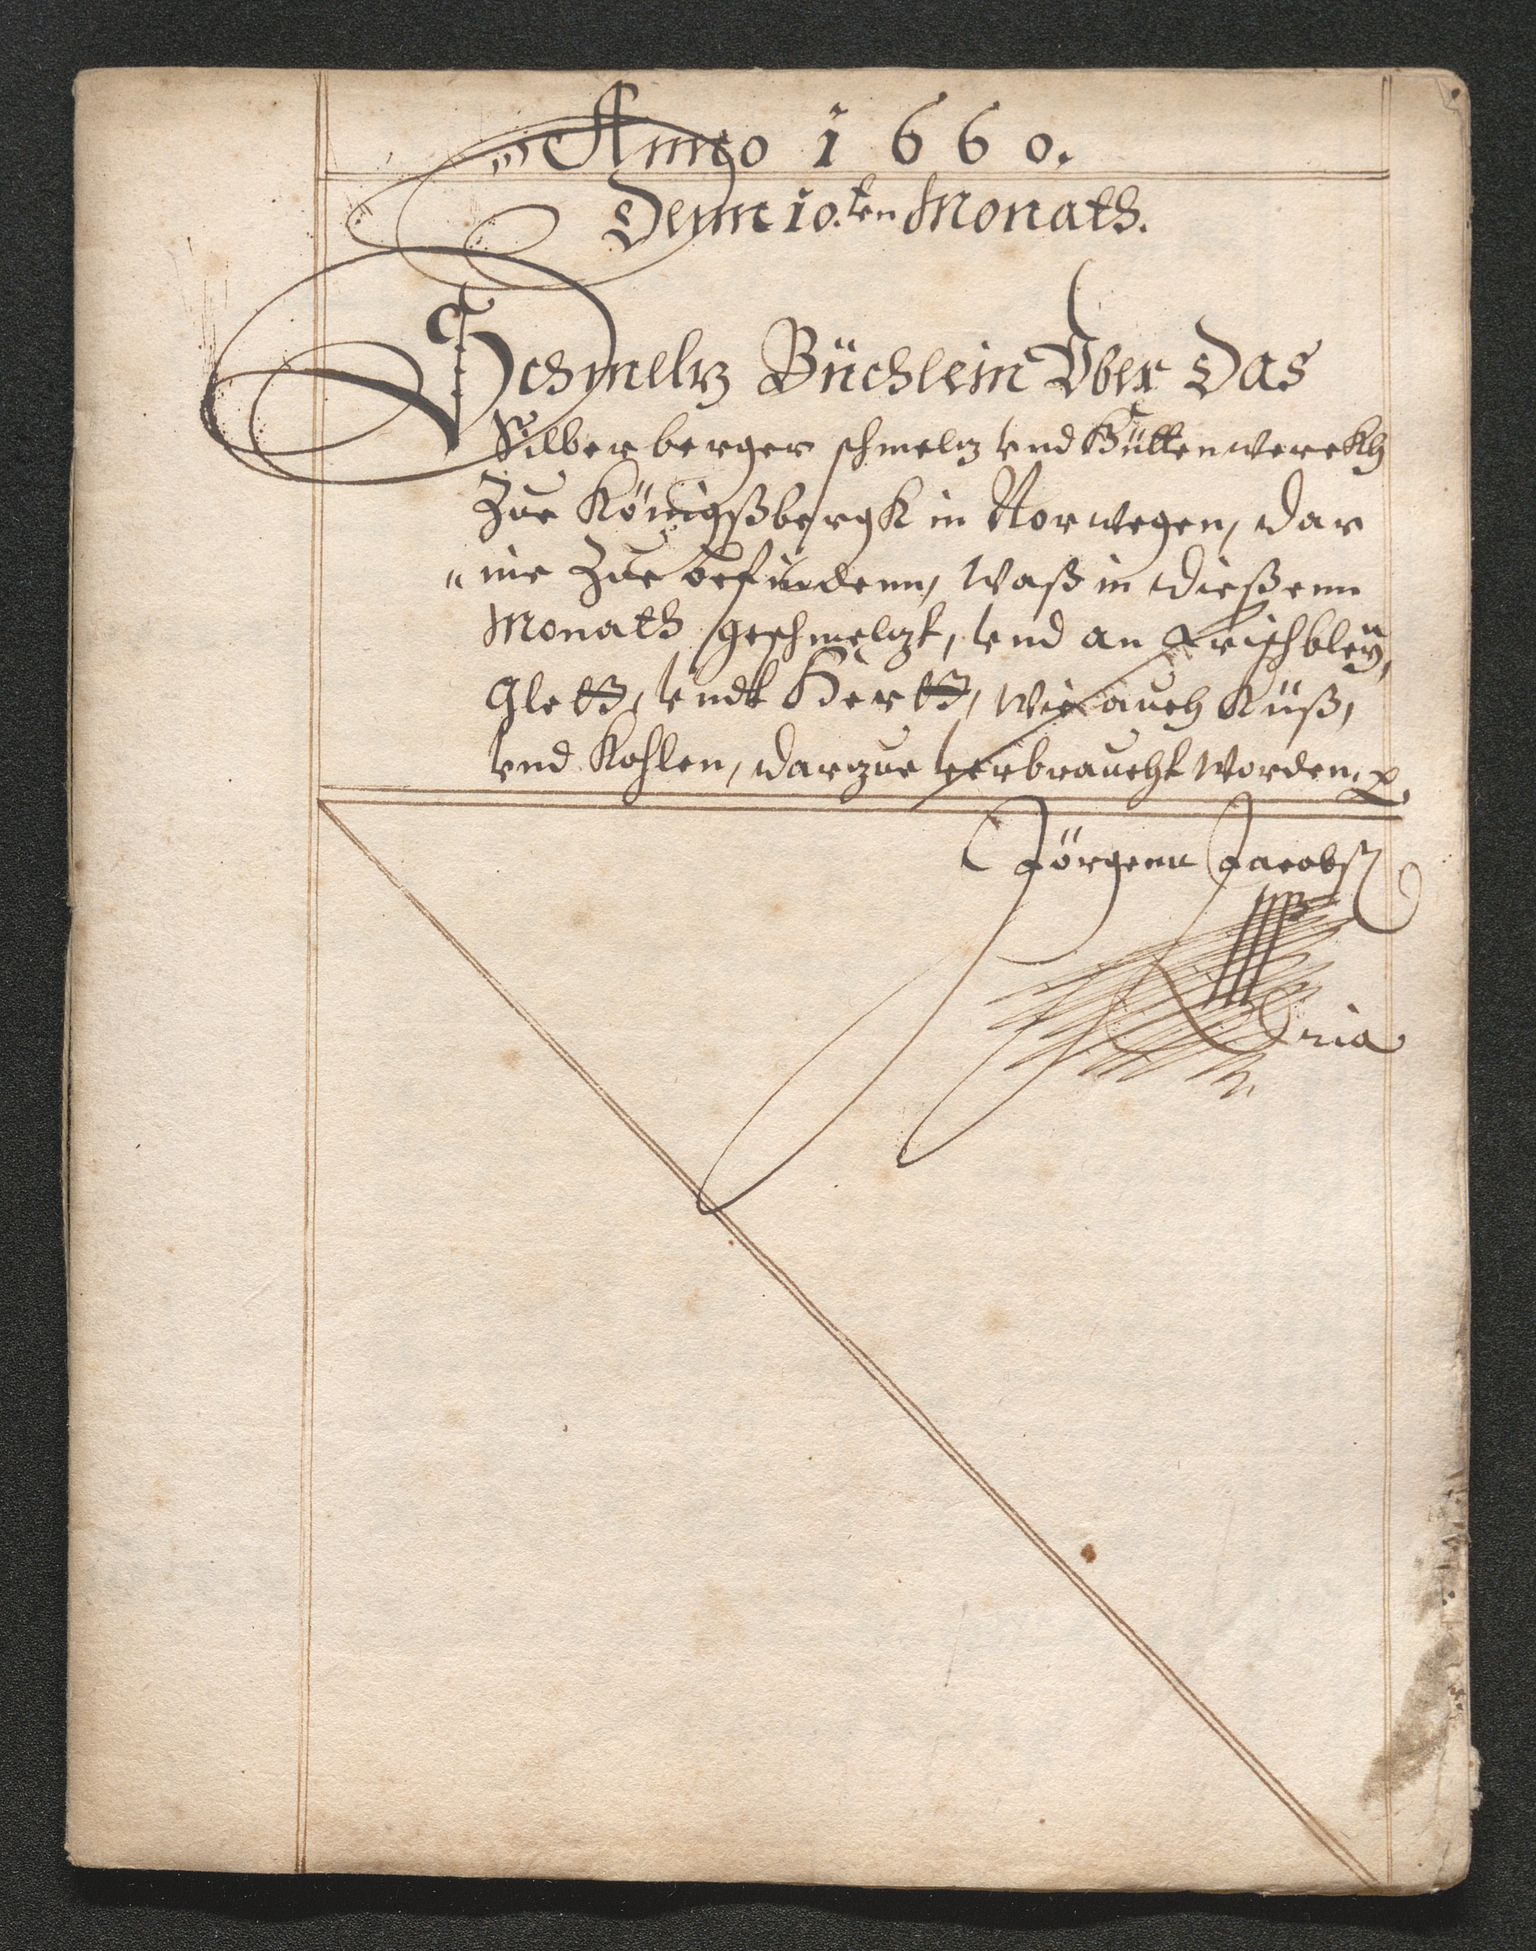 Anno 1660.
Denn 10.ten Monath.
Schmeltz Büchlein Über Das
Silberberger schmeltz vnd Hüttenwerckh
Zue Königßbergk in Norwegen, dar
"nie Zue befindenn, Waß in dießenn
Monath geschmeltzt, vnd an Frischbleÿ,
Glett, vndt Hertt, Wie auch Küß,
vnd Kohlen, darzue verbraucht worden.
Jörgenn Jacobß